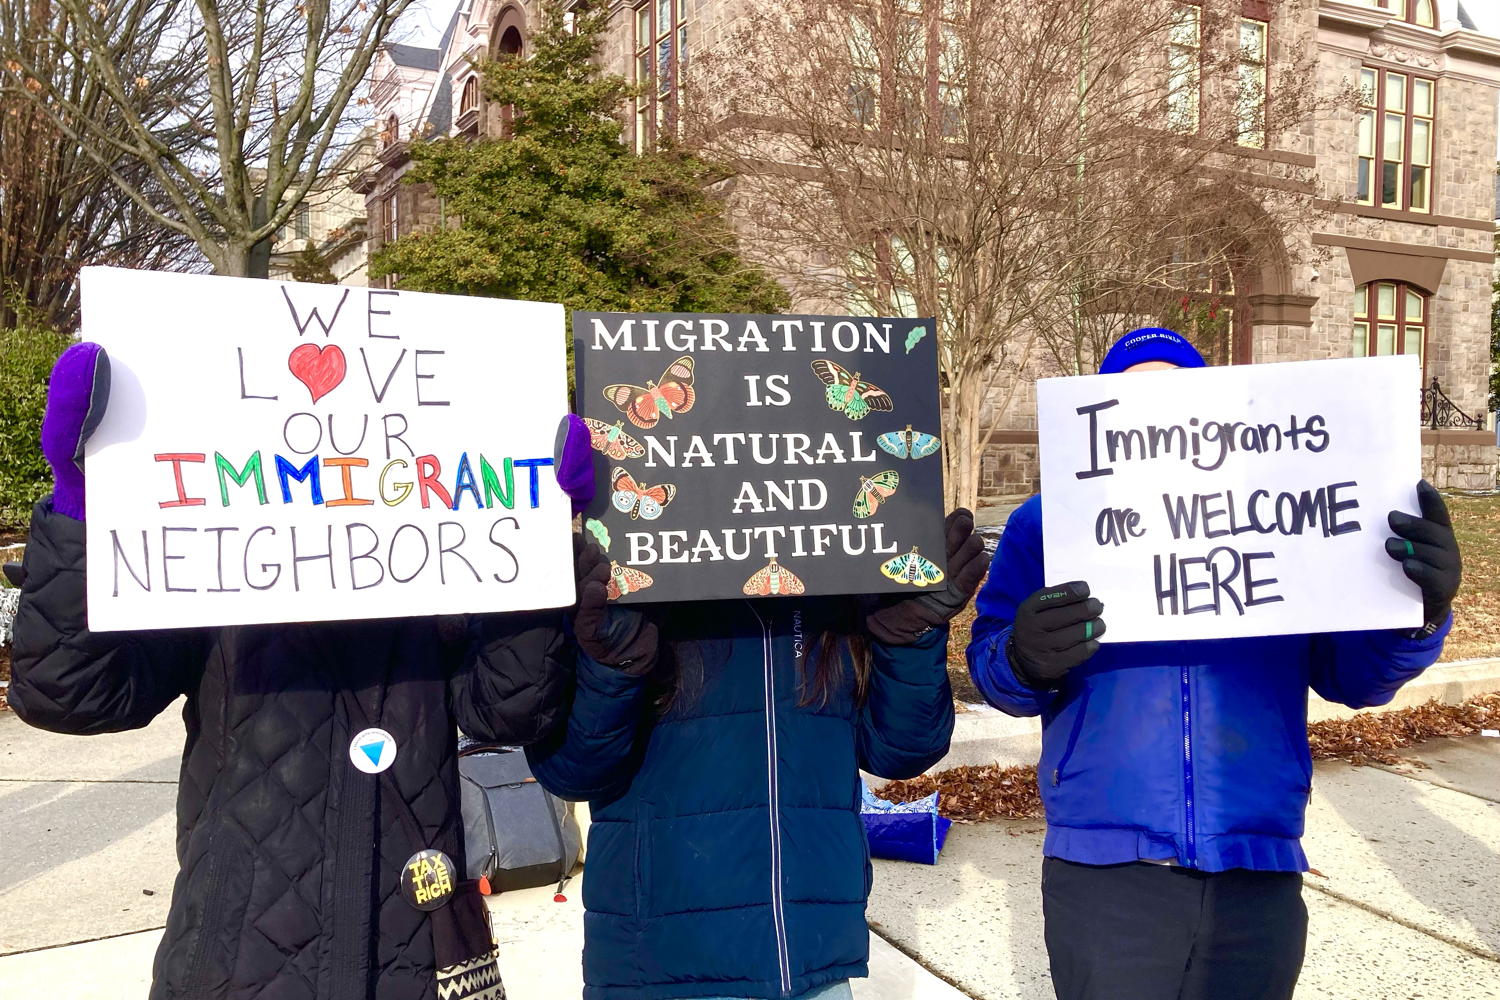 WE
LOVE
OUR
IMMIGRANT
NEIGHBORS
MIGRATION
IS
NATURAL
AND
BEAUTIFUL
COOPER RIVER
Immigrants
are WELCOME
HERE
HEAD
NAUTICA
TAX
THE
RICH